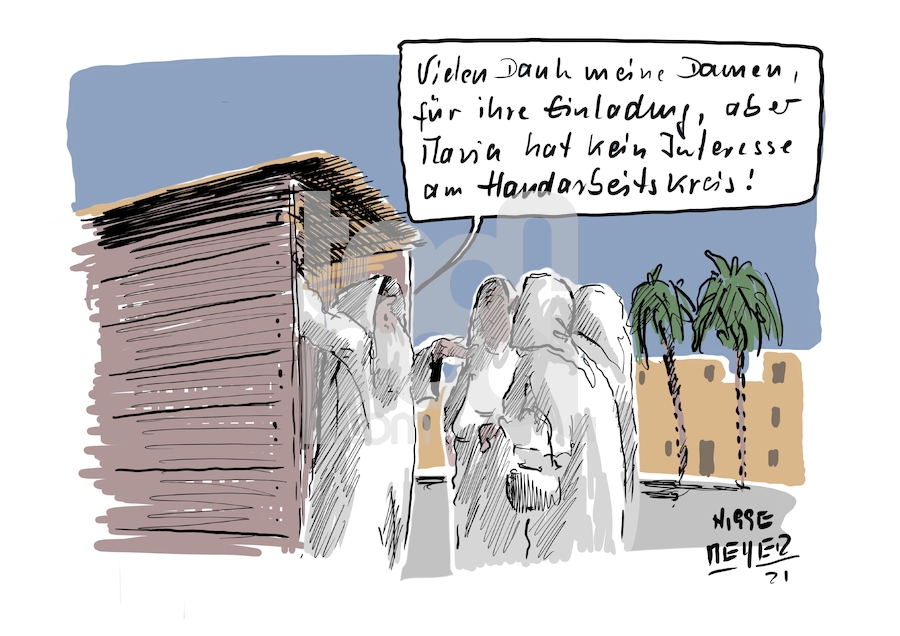 Vielen Dank meine Damen,
für ihre Einladung, aber
Maria hat kein Interesse
am Handarbeitskreis!
NISSE
MEYER
21